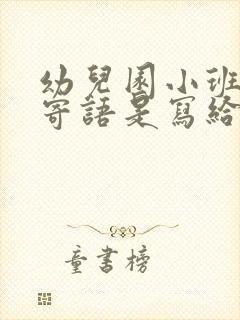 幼兒園小班
寄語是寫給
童書榜